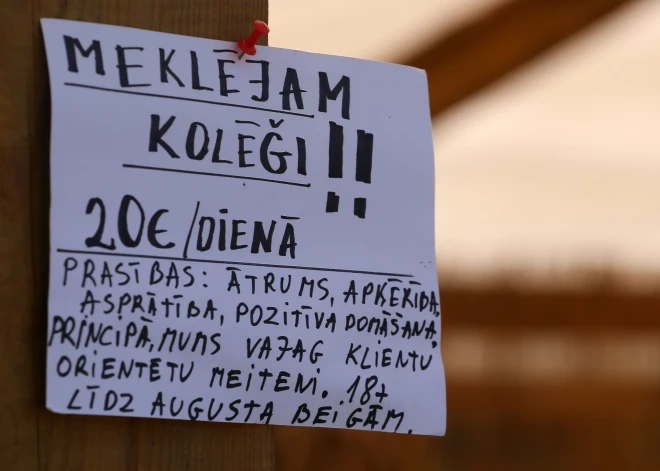 MEKLĒJAM
KOLĒĢI !!
20€/DIENĀ
PRASĪBAS: ĀTRUMS, APĶĒRĪBA,
ASPRĀTĪBA, POZITĪVA DOMĀŠANA.
PRINCIPĀ, MUMS VAJAG KLIENTU
ORIENTĒTU MEITENI. 18+
LĪDZ AUGUSTA BEIGĀM.